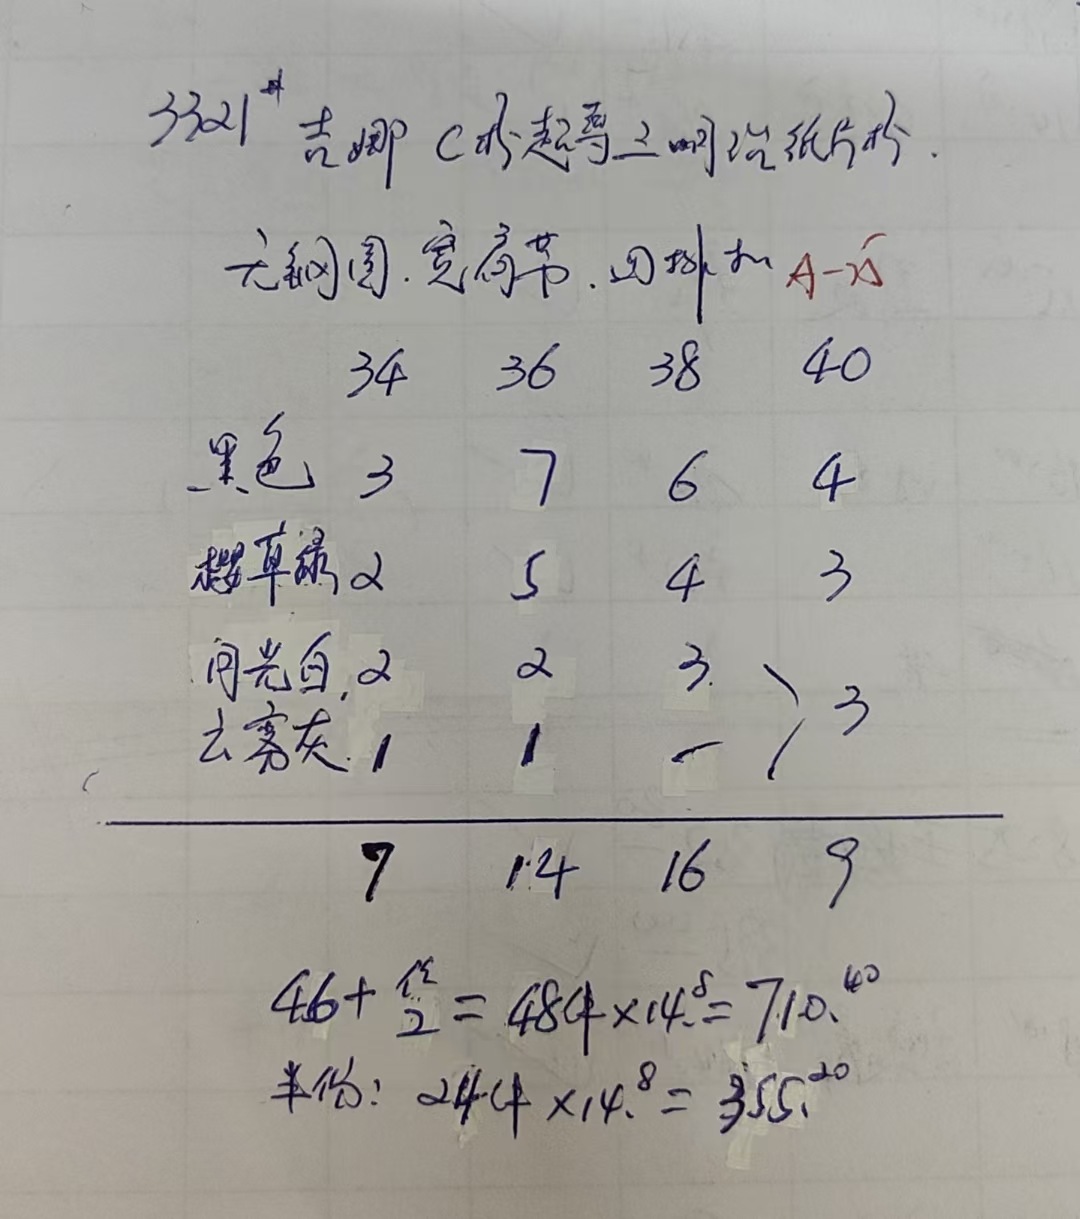 3321# 吉娜 C杯超薄三明治纸片杯.
无钢圈.宽肩带.四排扣
34 36 38 40
黑色 3 7 6 4
樱草绿 2 5 4 3
月光白. 2 2 3. 3
云雾灰. 1 1 一
7 14 16 9
46+ 2=48件×14.8=710.40
半份: 24件×14.8=355.20